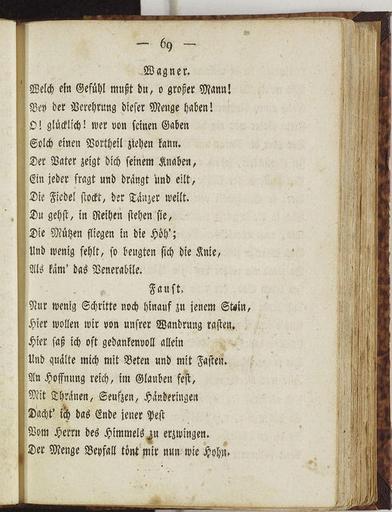 — 69 —
Wagner.
Welch ein Gefühl mußt du, o großer Mann!
Bey der Verehrung dieser Menge haben!
O! glücklich! wer von seinen Gaben
Solch einen Vortheil ziehen kann.
Der Vater zeigt dich seinem Knaben,
Ein jeder fragt und drängt und eilt,
Die Fiedel stockt, der Tänzer weilt.
Du gehst, in Reihen stehen sie,
Die Mützen fliegen in die Höh';
Und wenig fehlt, so beugten sich die Knie,
Als käm' das Venerabile.
Faust.
Nur wenig Schritte noch hinauf zu jenem Stein,
Hier wollen wir von unsrer Wandrung rasten.
Hier saß ich oft gedankenvoll allein
Und quälte mich mit Beten und mit Fasten.
An Hoffnung reich, im Glauben fest,
Mit Thränen, Seufzen, Händeringen
Dacht' ich das Ende jener Pest
Vom Herrn des Himmels zu erzwingen.
Der Menge Beyfall tönt mir nun wie Hohn.